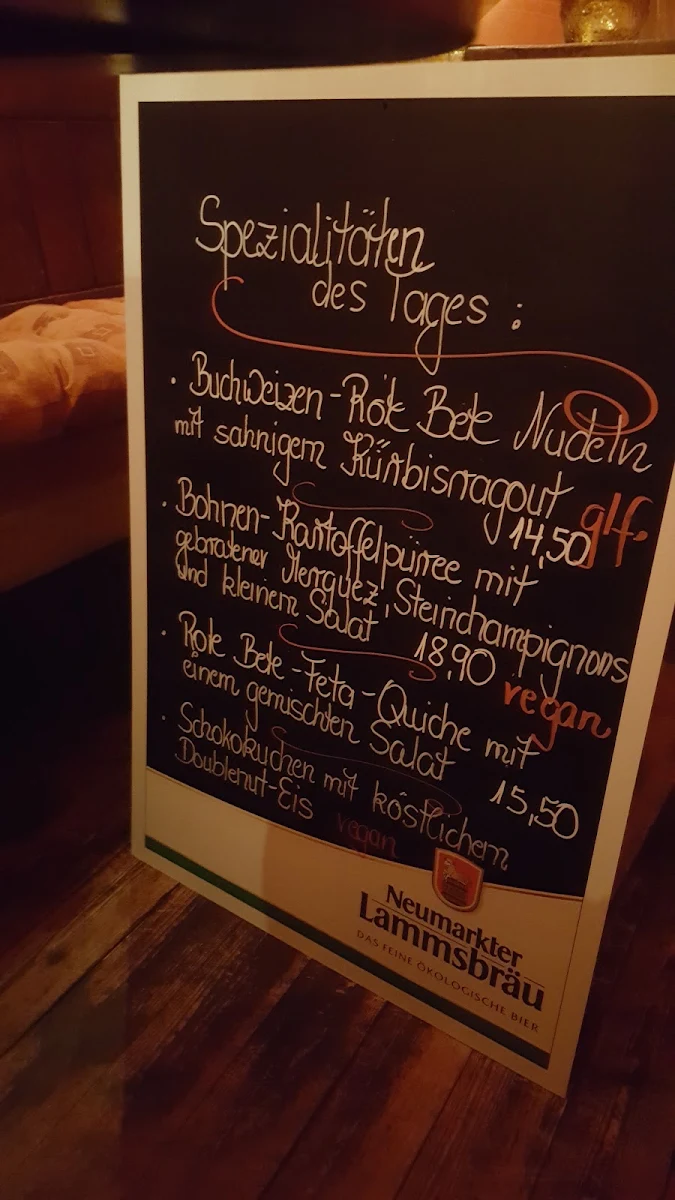 Spezialitäten
des Tages :
· Buchweizen-Rote Bete Nudeln
mit sahnigem Kürbisragout glf.
14,50
· Bohnen-Kartoffelpüree mit
gebratener Merguez, Steinchampignons
und kleinem Salat 18,90 vegan
· Rote Bete-Feta-Quiche mit
einem gemischten Salat 15,50
· Schokokuchen mit köstlichem
Doublenut-Eis vegan
Neumarkter
Lammsbräu
DAS FEINE ÖKOLOGISCHE BIER